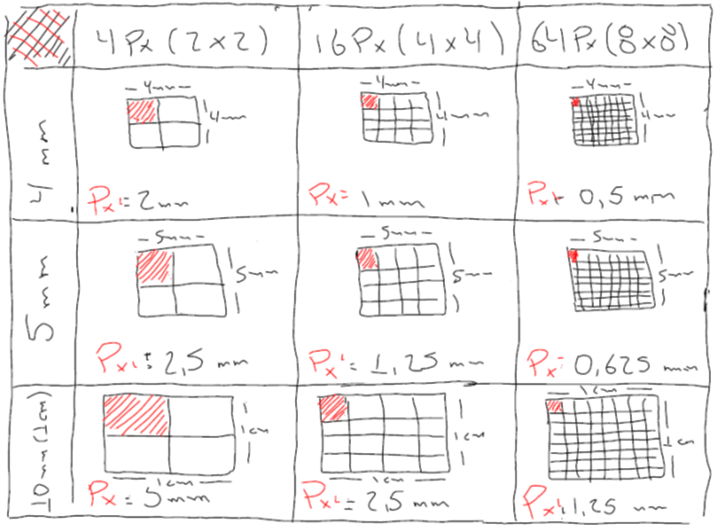 4Px (2x2)
16Px (4x4)
64Px (8x8)
4mm
4mm
4mm
Px: 2mm
4mm
4mm
Px= 1mm
4mm
4mm
Px= 0,5 mm
5mm
5mm
5mm
Px: 2,5 mm
5mm
5mm
Px: 1,25 mm
5mm
5mm
Px: 0,625 mm
10mm (1cm)
1cm
1cm
Px = 5mm
1cm
1cm
Px: 2,5 mm
1cm
1cm
Px: 1,25 mm